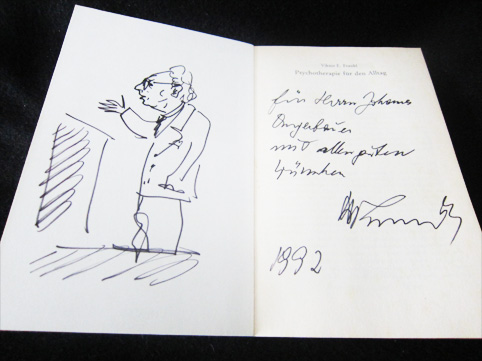 Viktor E. Frankl
Psychotherapie für den Alltag
für Herrn Johannes
mit allen guten
Wünschen
1992